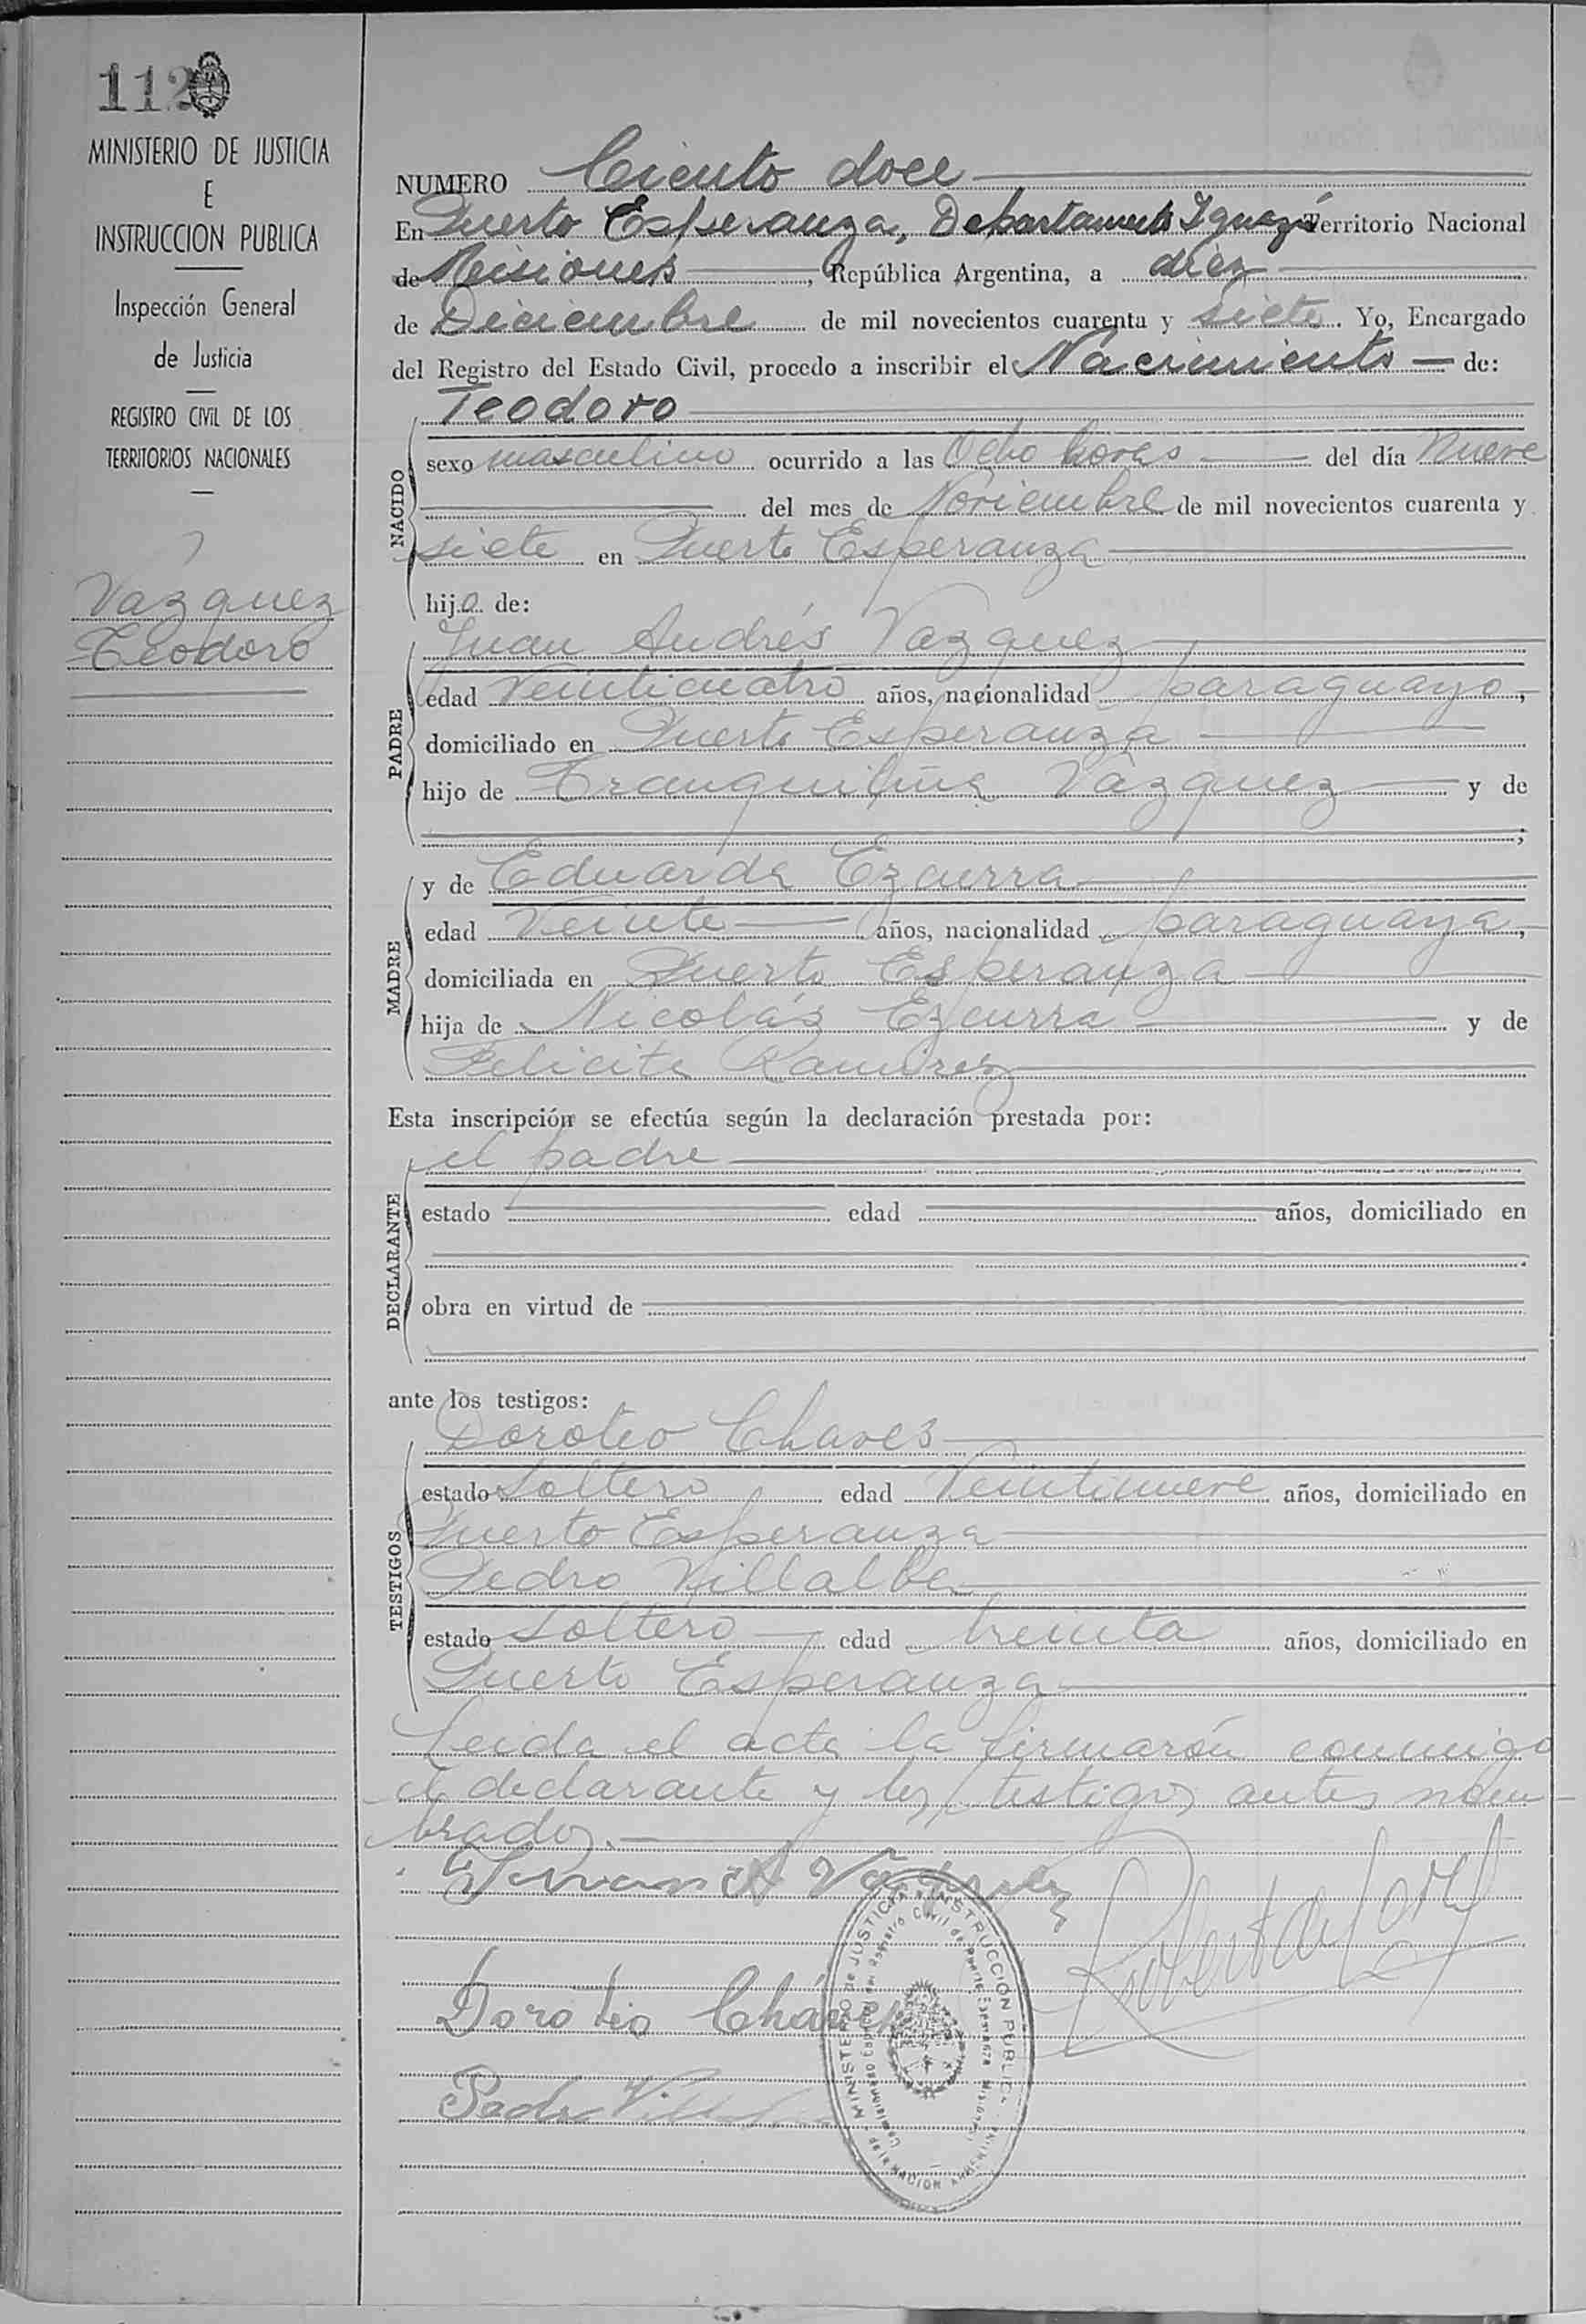 112
MINISTERIO DE JUSTICIA
E
INSTRUCCION PUBLICA
Inspección General
de Justicia
REGISTRO CIVIL DE LOS
TERRITORIOS NACIONALES
Vázquez
Teodoro
NUMERO Ciento doce
En Puerto Esperanza, Departamento Iguazú Territorio Nacional
de Misiones, República Argentina, a diez
de Diciembre de mil novecientos cuarenta y siete. Yo, Encargado
del Registro del Estado Civil, procedo a inscribir el Nacimiento de:
NACIDO
Teodoro
sexo masculino ocurrido a las Ocho horas del día Nueve
del mes de Noviembre de mil novecientos cuarenta y
siete en Puerto Esperanza
hijo de:
PADRE
Juan Andrés Vázquez
edad Veinticuatro años, nacionalidad paraguayo,
domiciliado en Puerto Esperanza
hijo de Tranquilina Vázquez y de
;
MADRE
y de Eduarda Ezcurra
edad Veinte años, nacionalidad paraguaya,
domiciliada en Puerto Esperanza
hija de Nicolás Ezcurra y de
Felicita Ramirez
Esta inscripción se efectúa según la declaración prestada por:
DECLARANTE
el padre
estado edad años, domiciliado en
obra en virtud de
ante los testigos:
TESTIGOS
Doroteo Chaves
estado Soltero edad Veintinueve años, domiciliado en
Puerto Esperanza
Pedro Villalba
estado Soltero edad treinta años, domiciliado en
Puerto Esperanza
Leida el acta la firmarón conmigo
el declarante y los testigos antes nom-
brados.
Juan A Vazquez
Doroteo Cháves
Pedro
MINISTERIO DE JUSTICIA e INSTRUCCIÓN PUBLICA